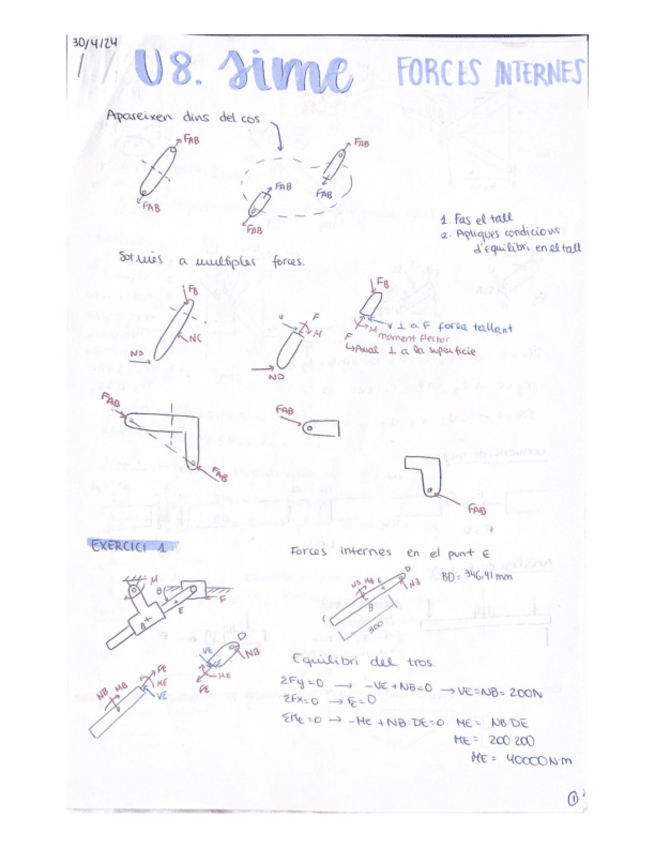 30/4/24
U8. sime FORCES INTERNES
Apareixen dins del cos
FAB
FAB
FAB
FAB
FAB
FAB
1. Fas el tall
2. Apliques condicions
d'equilibri en el tall
Sotmès a multiples forces.
FB
NC
ND
V
F
M
ND
FB
V ⊥ a F força tallant
M
moment flector
F
↳Axial ⊥ a la superfície
FAB
FAB
FAB
FAB
EXERCICI 1
Forces internes en el punt E
M
θ
F
E
B
D
NB MB E
NB
B
C
300
BD = 346,41 mm
D
VE
NB
ME
FE
NB MB
FE
ME
VE
Equilibri del tros.
ΣFy=0 → -VE +NB=0 → VE=NB= 200N
ΣFx=0 → FE=0
ΣME=0 → -ME + NB·DE=0 ME= NB·DE
ME= 200·200
ME= 40000N·m
1